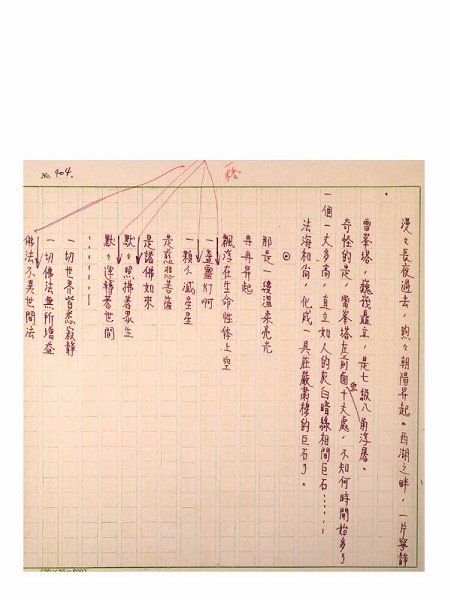 No. 404.
漫々長夜過去，煦々朝陽昇起。西湖之畔，一片寧靜
雷峯塔，巍峨矗立，是七級八角浮屠。
奇怪的是，雷峯塔左前面十丈處，不知何時開始多了
一個一丈多高，直立如人的灰白暗綠相間巨石……，
法海和尚，化成一具莊嚴肅穆的巨石了。
⊙
那是一縷溫柔亮光
冉冉昇起
飄浮在生命性体上空
一盞靈灯啊
一顆不滅星星
是慈悲菩薩
是諸佛如來
默々照拂著眾生
默々運轉著世間
………！
一切世界皆悉寂靜
一切佛法無所增益
佛法不異世間法